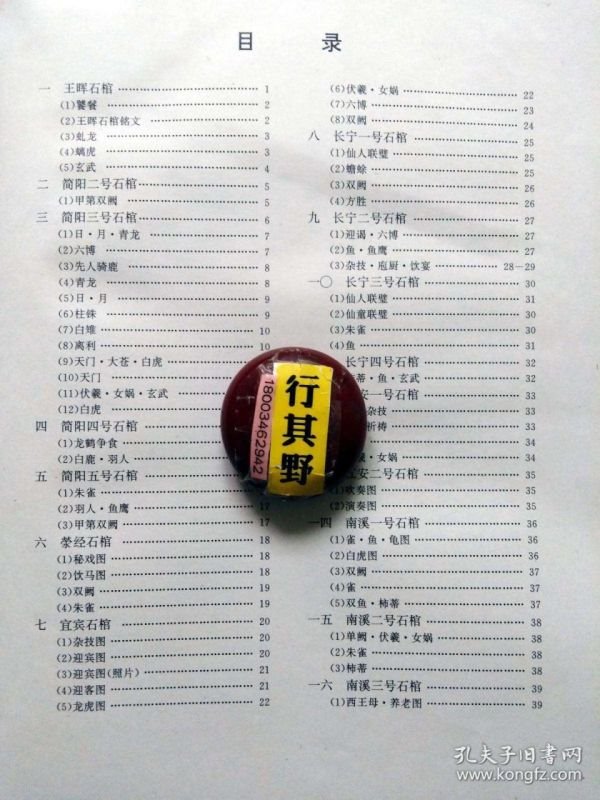 目 录
一 王晖石棺 1
(1)饕餮 2
(2)王晖石棺铭文 2
(3)虬龙 3
(4)螭虎 3
(5)玄武 4
二 简阳二号石棺 5
(1)甲第双阙 5
三 简阳三号石棺 6
(1)日·月·青龙 7
(2)六博 7
(3)先人骑鹿 8
(4)青龙 8
(5)日·月 9
(6)柱铢 9
(7)白雉 10
(8)离利 10
(9)天门·大苍·白虎
(10)天门
(11)伏羲·女娲·玄武
(12)白虎
四 简阳四号石棺
(1)龙鹤争食
(2)白鹿·羽人
五 简阳五号石棺
(1)朱雀
(2)羽人·鱼鹰 17
(3)甲第双阙 17
六 荥经石棺 18
(1)秘戏图 18
(2)饮马图 18
(3)双阙 19
(4)朱雀 19
七 宜宾石棺 20
(1)杂技图 20
(2)迎宾图 20
(3)迎宾图(照片) 21
(4)迎客图 21
(5)龙虎图 22
(6)伏羲·女娲 22
(7)六博 23
(8)双阙 24
八 长宁一号石棺 25
(1)仙人联璧 25
(2)蟾蜍 25
(3)双阙 26
(4)方胜 26
九 长宁二号石棺 27
(1)迎谒·六博 27
(2)鱼·鱼鹰 27
(3)杂技·庖厨·饮宴 28—29
一〇 长宁三号石棺 30
(1)仙人联璧 31
(2)仙童联璧 30
(3)朱雀 30
(4)鱼 31
长宁四号石棺 32
蒂·鱼·玄武 32
安一号石棺 33
杂技 33
祈祷 33
34
·女娲 34
江安二号石棺 35
(1)吹奏图 35
(2)演奏图 35
一四 南溪一号石棺 36
(1)雀·鱼·龟图 36
(2)白虎图 36
(3)双阙 37
(4)雀 37
(5)双鱼·柿蒂 37
一五 南溪二号石棺 38
(1)单阙·伏羲·女娲 38
(2)朱雀 38
(3)柿蒂 38
一六 南溪三号石棺 39
(1)西王母·养老图 39
行其野
18003462942
孔夫子旧书网
www.kongfz.com